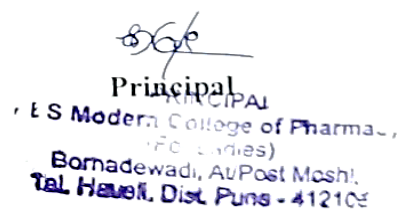 Principal
PRINCIPAL
ES Modern College of Pharmac
(For Ladies)
Borhadewadi, At/Post Moshi.
Tal. Haveli, Dist. Pune - 412105